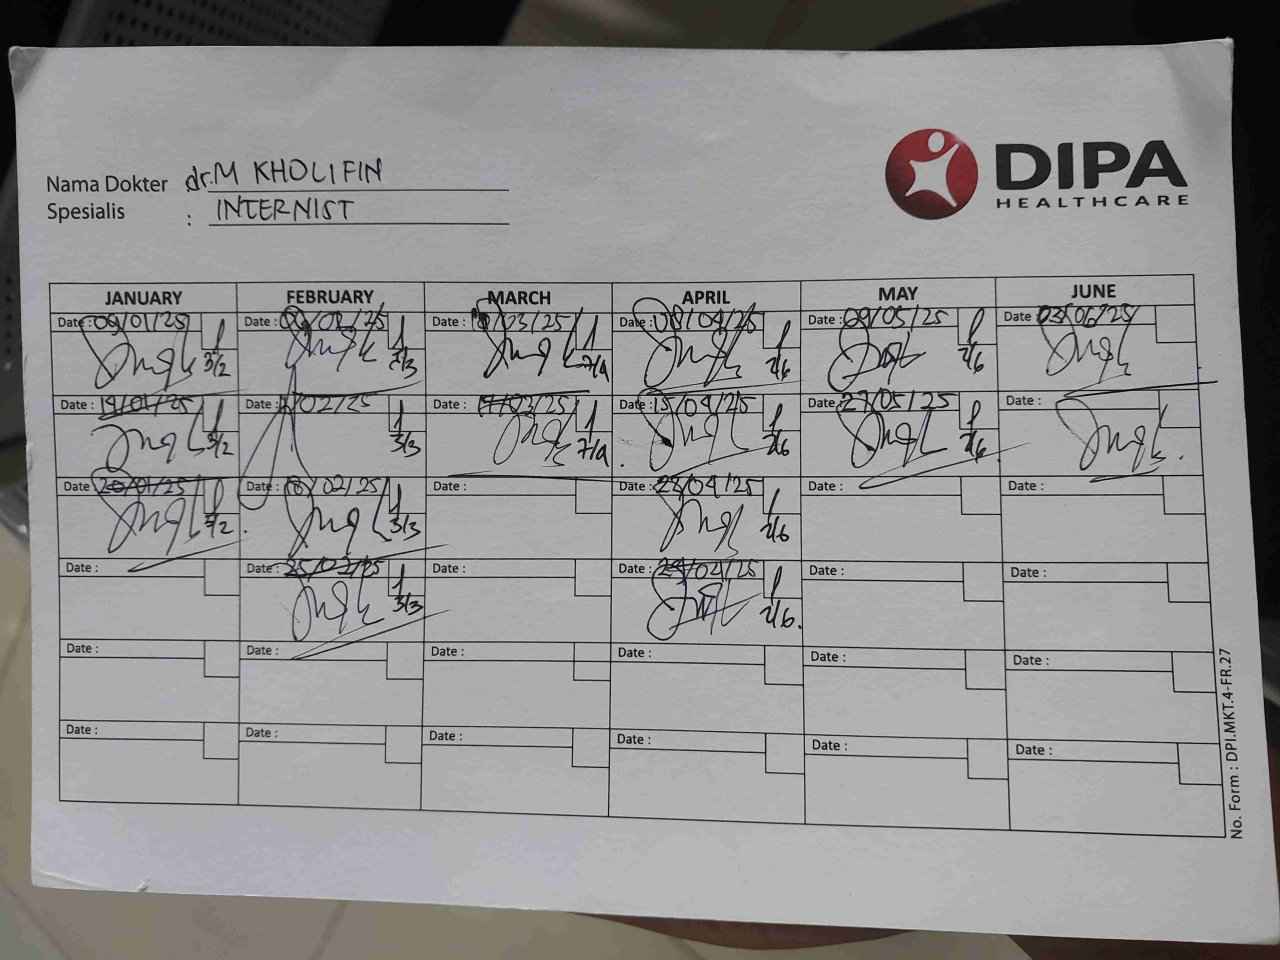 Nama Dokter dr. M KHOLIFIN
Spesialis : INTERNIST
DIPA
HEALTHCARE
JANUARY FEBRUARY MARCH APRIL MAY JUNE
Date : 09/01/25 Date : /02/25 Date : /03/25 Date : 08/04/25 Date : 09/05/25 Date : 03/06/25
3/2 3/3 7/4 2/6 2/6
Date : 19/01/25 Date : /02/25 Date : Date : 15/04/25 Date : 27/05/25 Date :
3/2 3/3 7/4 2/6 2/6
Date : 20/01/25 Date : 18/02/25 Date : Date : 22/04/25 Date : Date :
3/2 3/3 2/6
Date : Date : 25/02/25 Date : Date : 29/04/25 Date : Date :
3/3 2/6
Date : Date : Date : Date : Date : Date :
Date : Date : Date : Date : Date : Date :
No. Form : DPI.MKT.4-FR.27